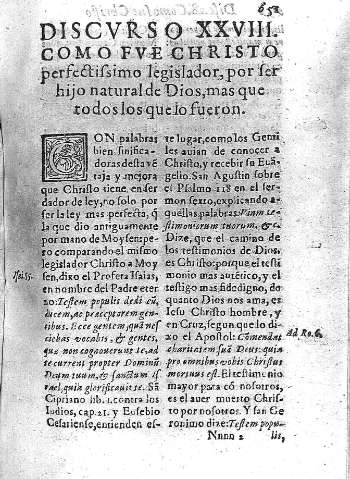 652
DISCVRSO XXVIII.
COMO FVE CHRISTO
perfectissimo legislador, por ser
hijo natural de Dios, mas que
todos los que lo fueron.
CON palabras
bien sinifica-
doras desta vẽ
taja y mejora
que Christo tiene, en ser
dador de ley, no solo por
ser la ley mas perfecta, q̃
la que dio antiguamente
por mano de Moysen, pe-
ro comparando el mismo
legislador Christo a Moy
sen, dixo el Profeta Isaias,
Isai.55.
en nombre del Padre eter
no: Testem populis dedi eũ,
ducem, ac praeceptorem gen-
tibus. Ecce gentem, quã nes
ciebas vocabis, & gentes,
quae non cognouerunt te, ad
te current propter Dominũ
Deum tuum, & sanctum Is
rael, quia glorificauit te. Sã
Cipriano lib. 1. contra los
Iudios, cap. 21. y Eusebio
Cesariense, entienden es-
te lugar, como los Genti
les auian de conocer a
Christo, y recebir su Euã-
gelio. San Agustin sobre
el Psalmo 118 en el ser-
mon sexto, explicando a-
quellas palabras: Viam te-
stimoniorum tuorum, &c.
Dize, que el camino de
los testimonios de Dios,
es Christo: porque el testi
monio mas autẽtico, y el
testigo mas fidedigno, de
quanto Dios nos ama, es
Iesu Christo hombre, y
en Cruz, segun que lo di-
xo el Apostol: Comendat
Ad Ro.6.
charitatem suã Deus: quia
pro omnibus vobis Christus
mortuus est. El testimonio
mayor para cõ nosotros,
es el auer muerto Christ
to por nosotros. Y san Ge
ronimo dize: Testem popu-
Nnnn 2
lis,